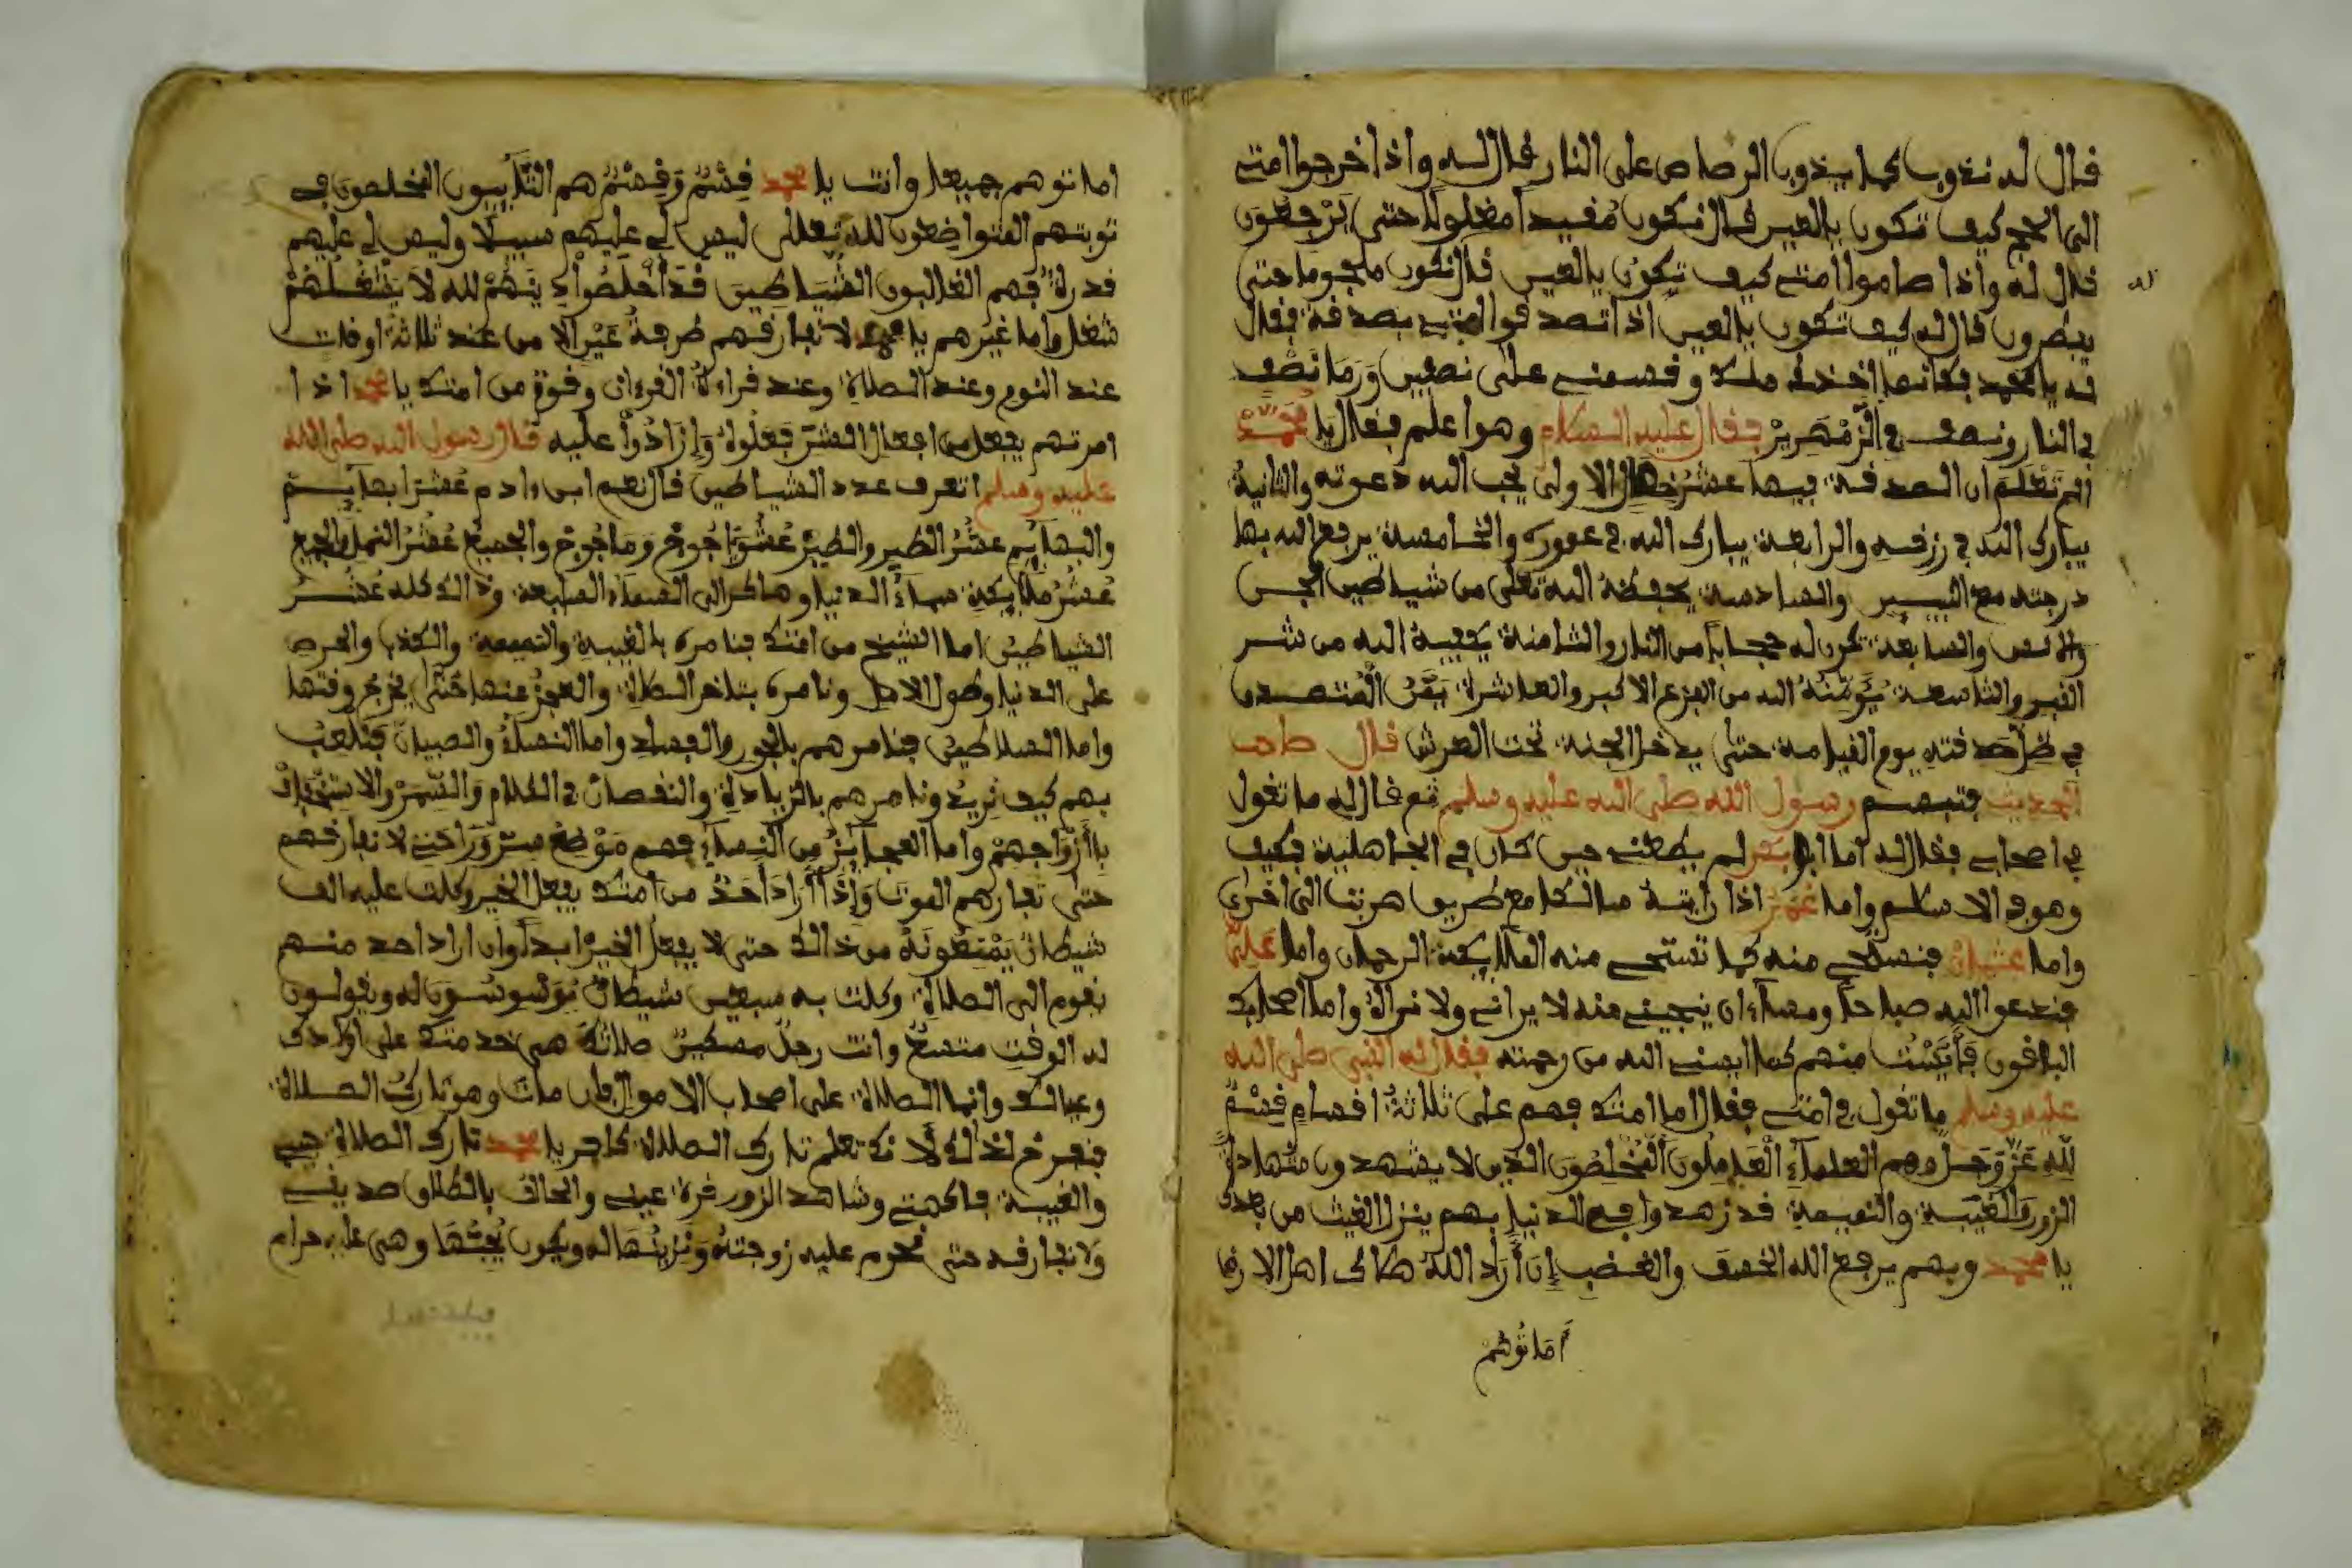 قال له نذوب كما يذوب الرصاص على النار قال له واذا خرجوا امتي
الى الحج كيف تكون يا لعين قال نكون مقيدا مغلولا حتى يرجعون
قال له واذا صاموا امتي كيف تكون يا لعين قال نكون ملجوما حتى
يفطرون قال له كيف تكون يا لعين اذا تصدقوا امتي بصدقة فقال
له يا محمد فكانما اخذ وقسمني على نصفين وَرَمَا نصف
في النار ونصف في الزمهرير فقال عليه السلام وهو اعلم فقال يا محمد
الم تعلم ان الصدقة فيها عشر خصال الاولى يجب الله دعوته والثانية
يبارك الله في رزقه والرابعة يبارك الله في عموره والخامسة يرفع الله بها
درجته مع والسادسة يحفظه الله تعلى من شياطين الجن
والانس والسابعة تكون له حجابا من النار والثامنة يكفيه الله من شر
القبر والتاسعة يُؤَمِّنُهُ الله من الفزع الاكبر والعاشرة المتصدق
في ظل صدقته يوم القيامة حتى يدخل الجنة تحت العرش قال صاحب
الحديث فتبسم رسول الله صلى الله عليه وسلم ثم قال له ما تقول
في اصحابي فقال له اما ابو بكر لم يطعني حين كان في الجاهلية فكيف
وهو في الاسلام واما عمر اذا رايته سالكا مع طريق هربت الى اخرى
واما عثمان فنستحي منه كما تستحي منه الملايكة الرحمان واما علي
فندعوا اليه صباحا ومساء ان ينجيني منه لا يراني ولا نراه واما اصحابك
الباقون فأيست منهم كما ايسني الله من رحمته فقال له النبي صلى الله
عليه وسلم ما تقول في امتي فقال اما امتك فهم على ثلاثة اقسام قسم
لله عز وجل وهم العلماء العاملون المخلصون الذين لا يشهدون شهادة
الزور والغيبة والنميمة قد زهدوا في الدنيا بهم ينزل الغيث من
يا محمد وبهم يرفع الله الخسف والغضب ان أراد الله هلاك اهل الارض
أماتوهم
اماتوهم جميعا وانت يا محمد قسم وقسم هم التايبون المخلصون في
توبتهم المتواضعون لله تعالى ليس لي عليهم سبيلا وليس لي عليهم
قدرة فهم الغالبون الشياطين قد أخلصوا لله لا يشغلهم
شغل واما غيرهم يا محمد لا نفارقهم طرفة عين الا من عند ثلاثة اوقات
عند النوم وعند الصلاة وعند قراءة القرءان وقوة من امتك يا محمد اذا
امرتهم بفعل من افعال الشر فعلوه وإزادوا عليه قال رسول الله صلى الله
عليه وسلم اتعرف عدد الشياطين قال نعم ابن ءادم عُشر ابهايم
والبهايم عشر الطير والطير عشر وماجوج والجميع عشر النمل والجميع
عشر ملايكة سماء الدنيا وهاكذا الى السماء السابعة وذالك كله عشر
الشياطين اما الشيخ من امتك فنامره بالغيبة والنميمة والكذب والحرص
على الدنيا وطول الامل ونامره بتاخر الصلاة والعجز عنها حتى يخرج وقتها
واما السلاطين فنامرهم بالجور والفساد واما النساء والصبيان فنلعب
بهم كيف نريد ونامرهم بالزيادة والنقصان في الكلام والاستخفاف
بأزواجهم واما العجايز من النساء فهم موضع سر وراحتي لا نفارقهم
حتى تفارهم الموت وإذا أراد أحد من امتك يفعل الخير وكلت عليه الف
شيطان يمنعونه من ذالك حتى لا يفعل الخير ابدا وان اراد احد منهم
نقوم الى الصلاة وكلت به سبعين شيطان يوسوسون له ويقولون
له الوقت متسع وانت رجل مسكين صلاتك هي خدمتك على اولادك
وعيالك وانما الصلاة على اصحاب الاموال فان مات وهو تارك الصلاة
فنفرح لذالك لانك تعلم تارك الصلاة كافر يا محمد تارك الصلاة حبي
والغيبة فاكهتي وشاهد الزور قرة عيني والحالف بالطلاق صديقي
ولا نفارقه حتى تحرم عليه زوجته ونزينها له ويكون يحبها وهي عليه حرام